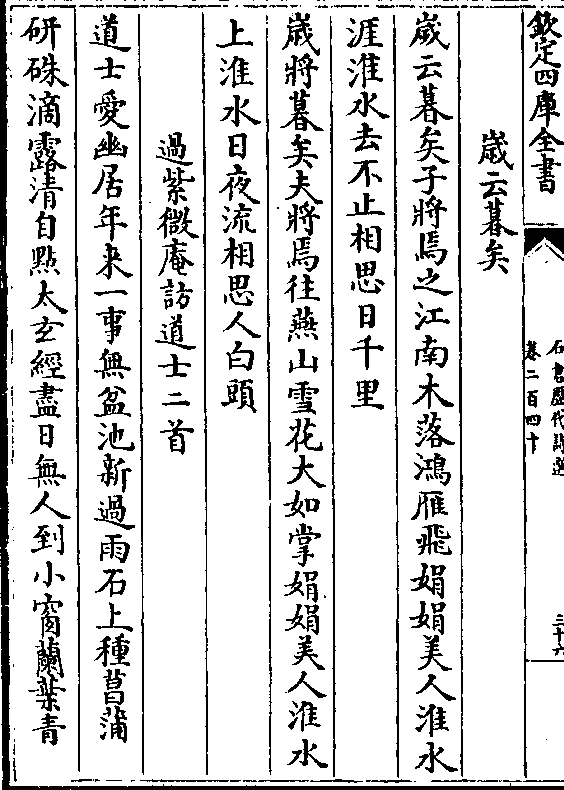 欽定四庫全書
石倉歷代詩選
卷二百四十
三十六
歲云暮矣
歲云暮矣子將焉之江南木落鴻雁飛娟娟美人淮水
涯淮水去不止相思日千里
歲將暮矣夫將焉往燕山雪花大如掌娟娟美人淮水
上淮水日夜流相思人白頭
過紫微庵訪道士二首
道士愛幽居年来一事無盆池新過雨石上種菖蒲
研硃滴露清自點太玄經盡日無人到小窗蘭葉青